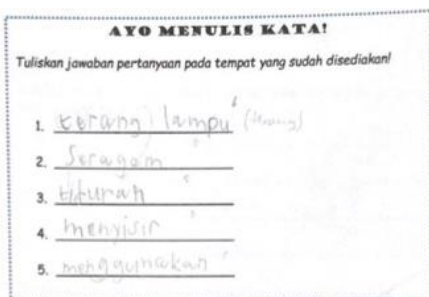 AYO MENULIS KATA!
Tuliskan jawaban pertanyaan pada tempat yang sudah disediakan!
1. terang lampu (terang)
2. Seragam
3. tiduran
4. menyisir
5. menggunakan